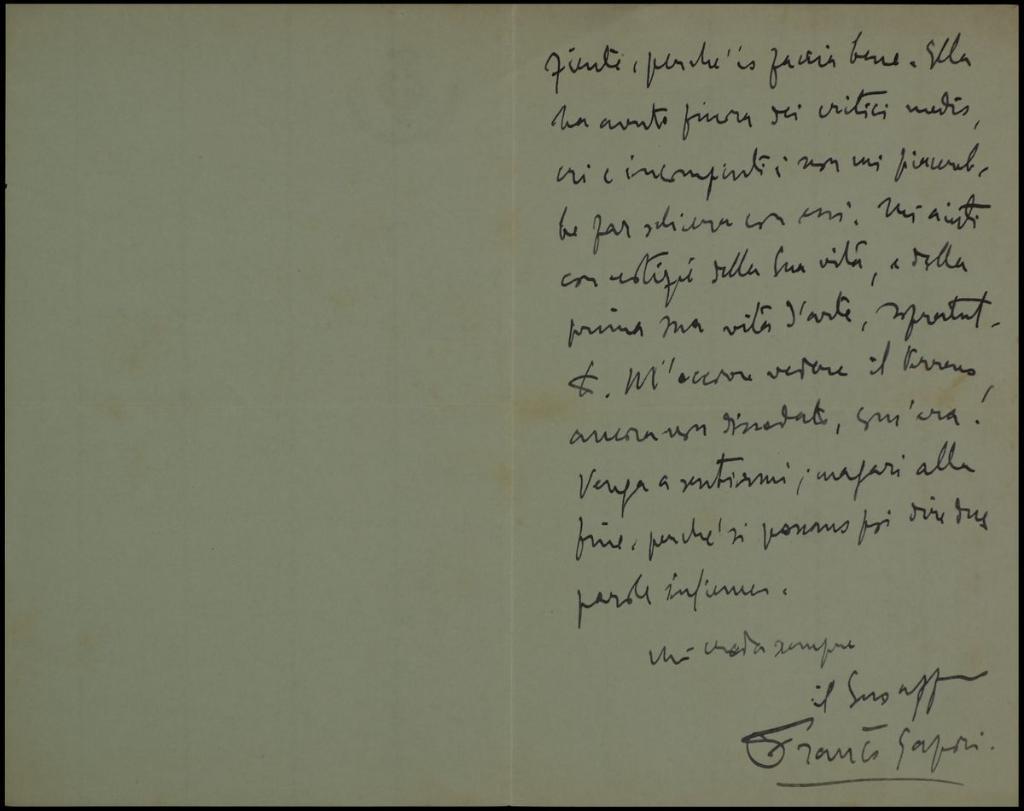 ziente, perché io faccia bene. Ella
ha avuto finora dei critici medio,
cri e incompetenti; non mi piacereb,
be far schiera con essi. Mi aiuti
con notizie della Sua vita, e della
prima sua vita d'arte, sopratut-
to. M'occorre vedere il terreno,
ancora non dissodato, com'era!
Venga a sentirmi, magari alla
fine, perché si possano poi dire due
parole insieme.
Mi creda sempre
il Suo aff
Francesco Sapori.